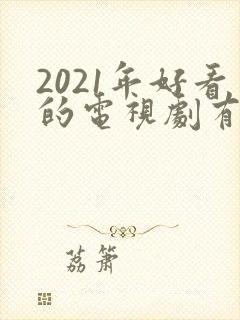 2021年好看
的電視劇有
荔簫